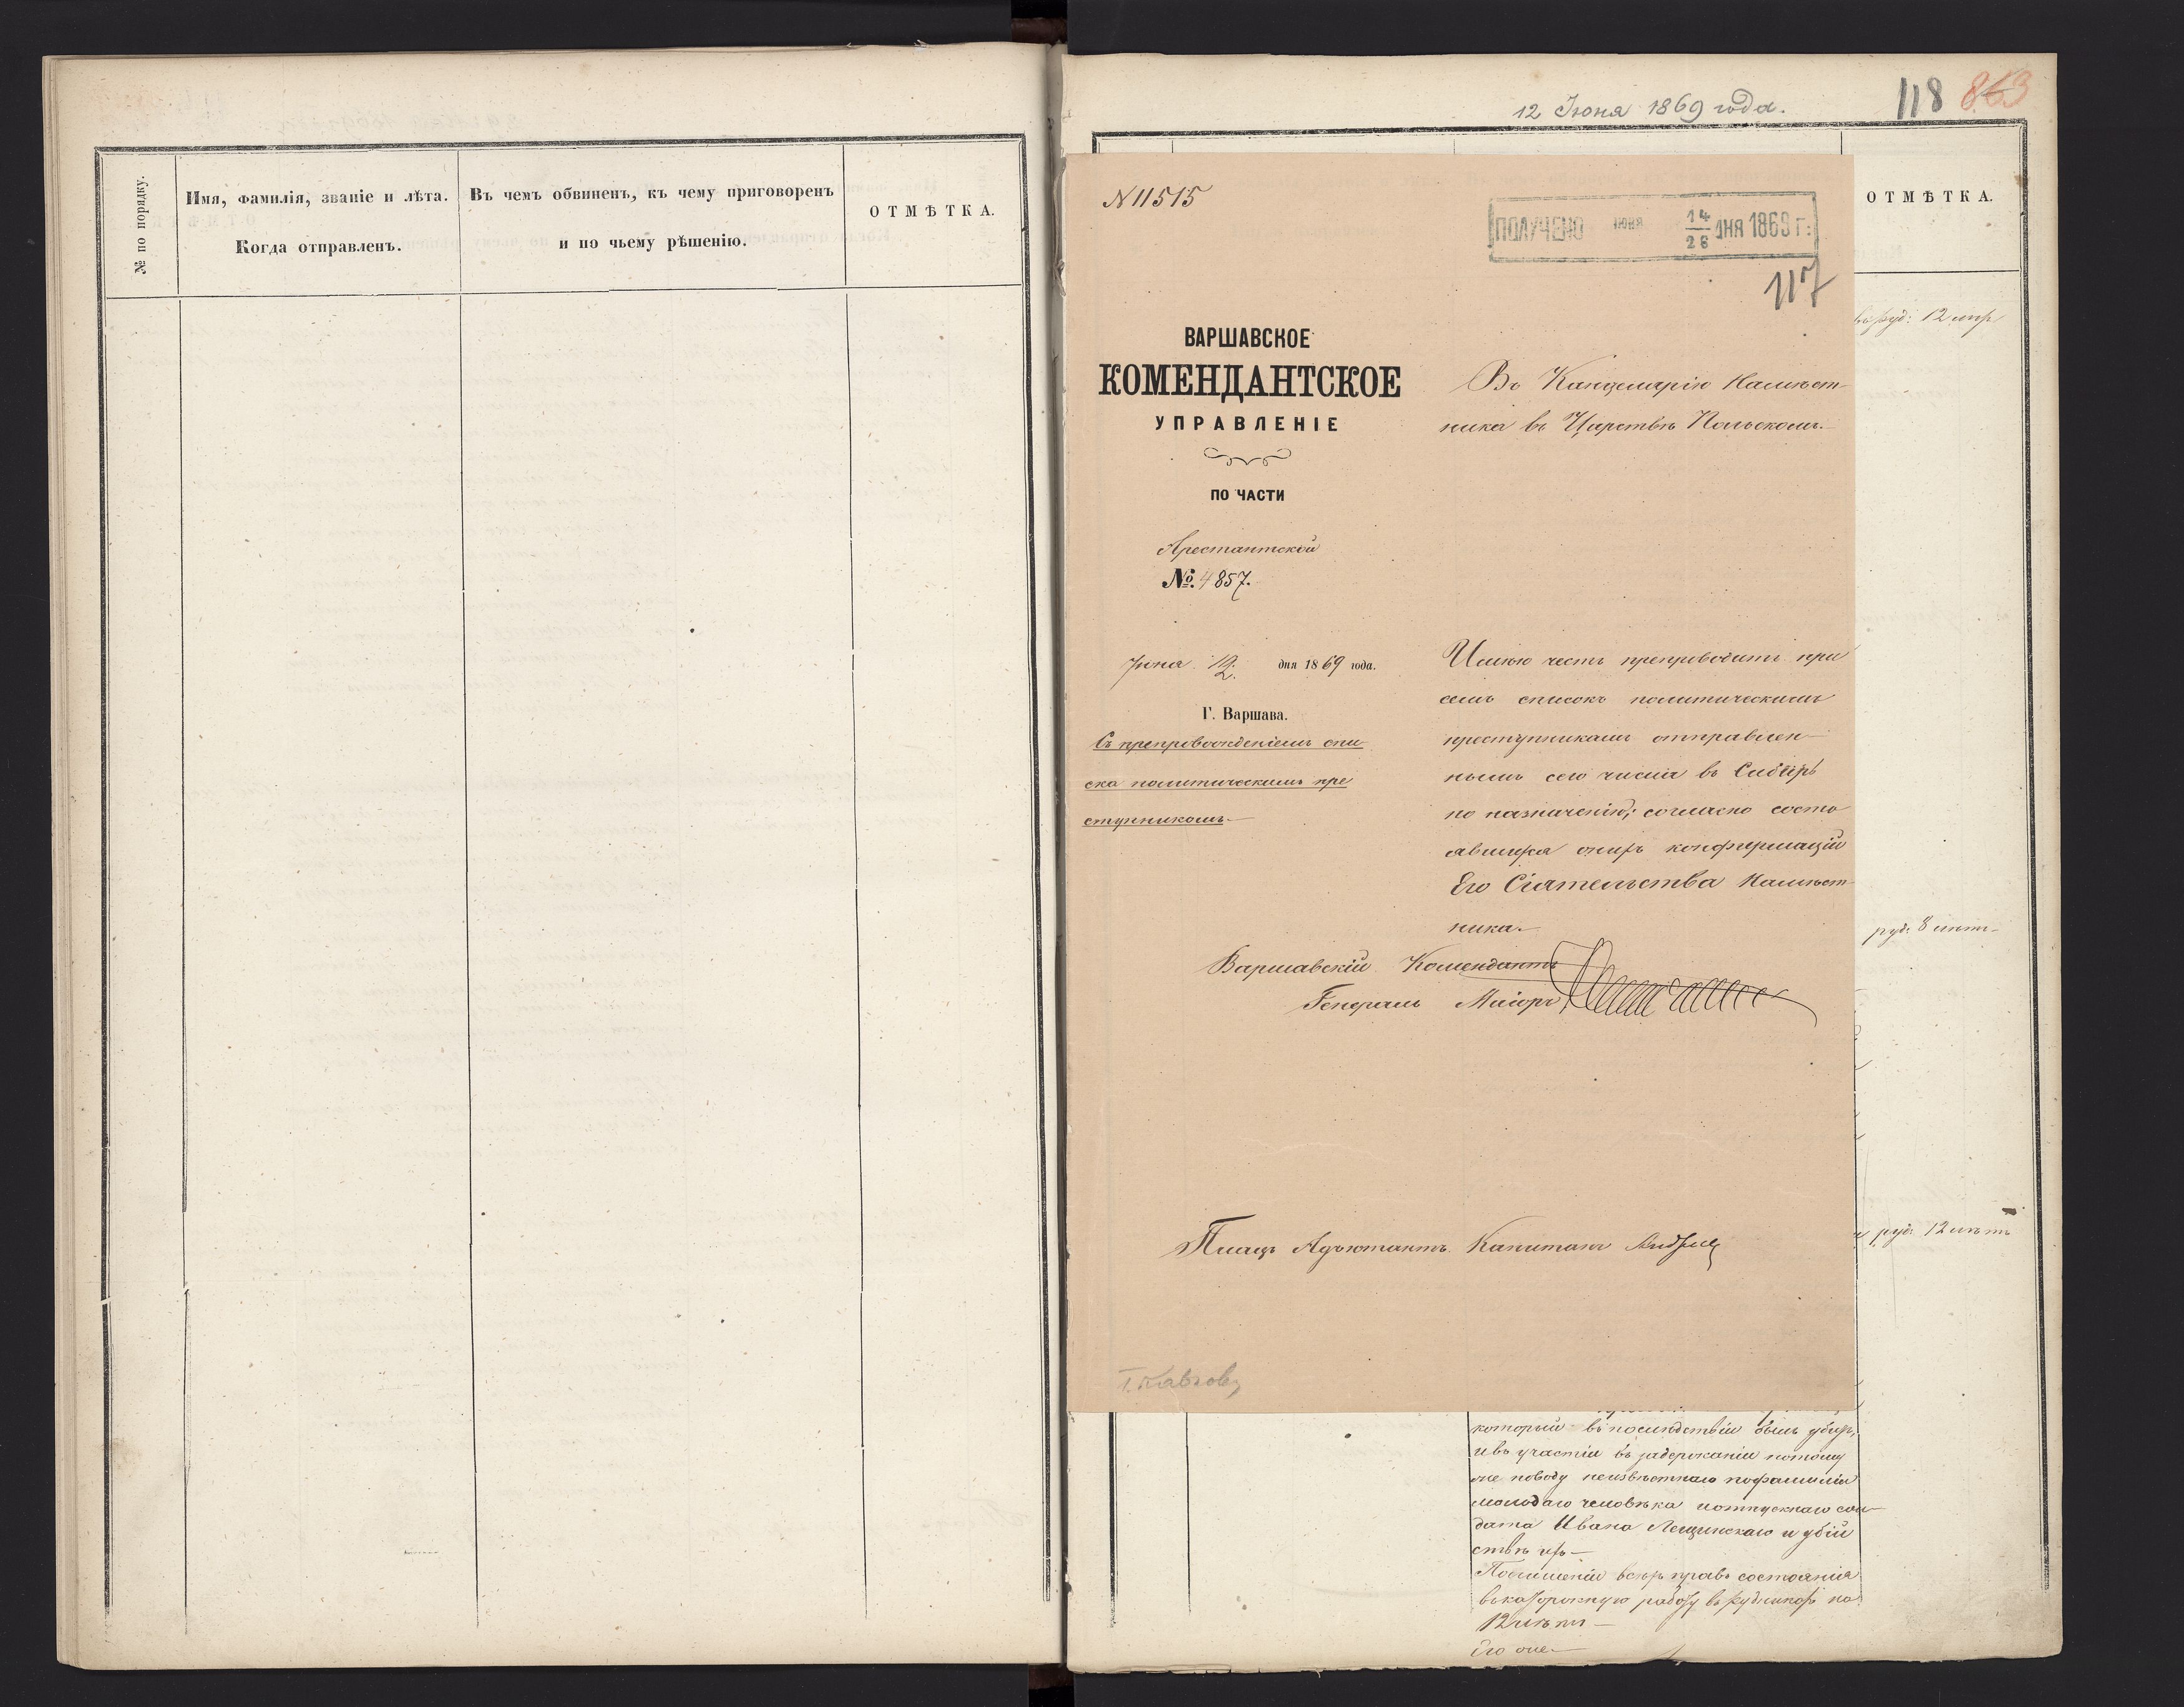 № по порядку.
Имя, фамилія, званіе и лѣта.
Когда отправленъ.
Въ чемъ обвиненъ, къ чему приговоренъ
и по чьему рѣшенію.
ОТМѢТКА.
12 Июня 1869 года.
118 863
ОТМѢТКА.
N 11515
ПОЛУЧЕНО июня 14/26 ДНЯ 1869 г.
117
ВАРШАВСКОЕ
КОМЕНДАНТСКОЕ
УПРАВЛЕНІЕ
ПО ЧАСТИ
Арестантской
№. 4857.
Іюня 12. дня 1869 года.
Г. Варшава.
Съ препровожденіемъ спи
ска политическимъ пре
ступникомъ.—
Въ Канцелярію Намѣст-
ника въ Царствѣ Польскомъ.—
Имѣю честь препроводить при
семъ списокъ политическимъ
преступникамъ отправлен-
нымъ сего числа въ Сибирь
по назначенію, согласно состо
явшихся о нихъ конфирмацій
Его Сіятельства Намѣст-
ника.—
Варшавскій Комендантъ
Генералъ Маіоръ
Плацъ Адъютантъ Капитанъ
въ руд: 12 лѣт
руд: 8 лѣтъ
руд: 12 лѣтъ
который въ послѣдствіи былъ убитъ,
и въ участіи въ задержаніи потому
же поводу неизвѣстнаго по фамиліи
молодаго человѣка и отпускнаго сол-
дата Ивана Лещинскаго и убій
ствѣ ихъ—
По лишеніи всѣхъ правъ состоянія
въ каторжную работу въ рудникахъ на
12 лѣтъ—
Его же—